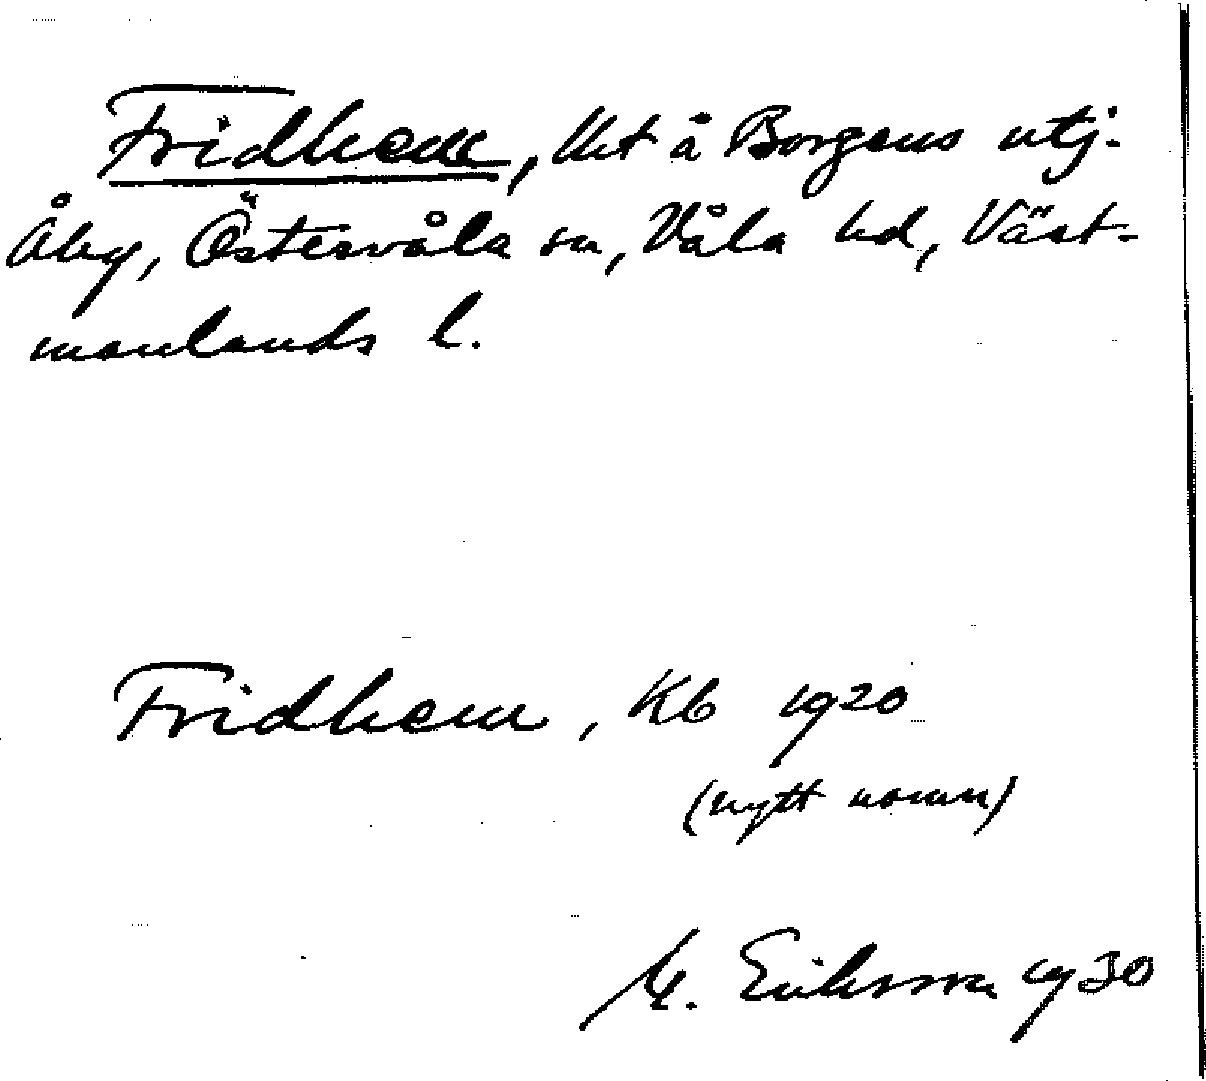 Fridhem, lht å Borgens utj.
Åby, Östervåla sn, Våla hd, Väst-
manlands l.
Fridhem, Kb 1920
(nytt namn)
M. Eriksson 1930